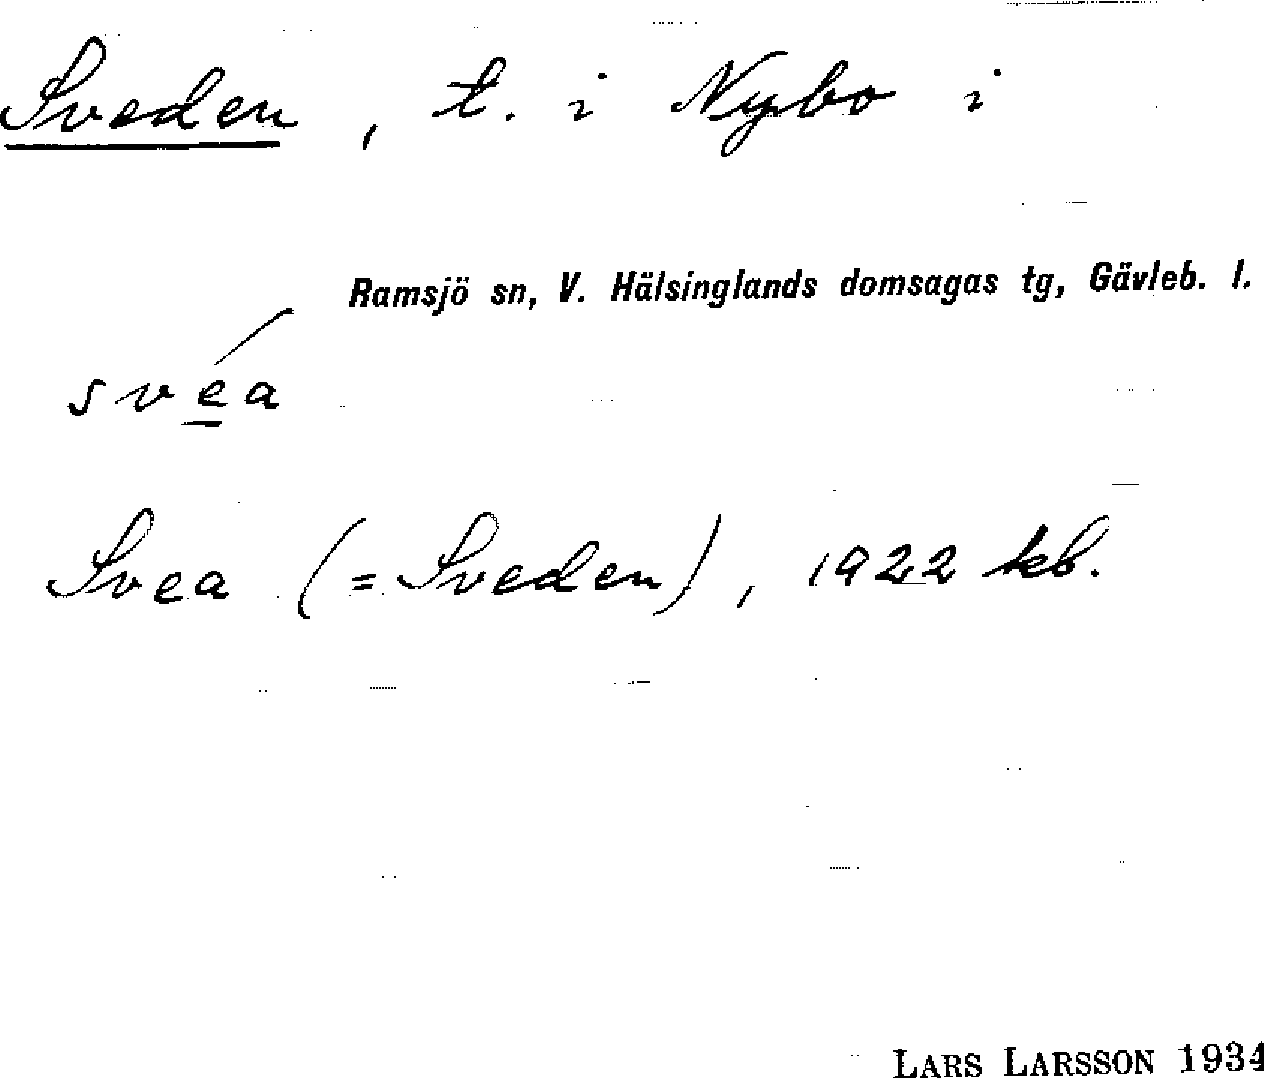 Sveden, t. i Nybo i
Ramsjö sn, V. Hälsinglands domsagas tg, Gävleb. l.
svéa
Svea (= Sveden), 1922 kb.
LARS LARSSON 1934